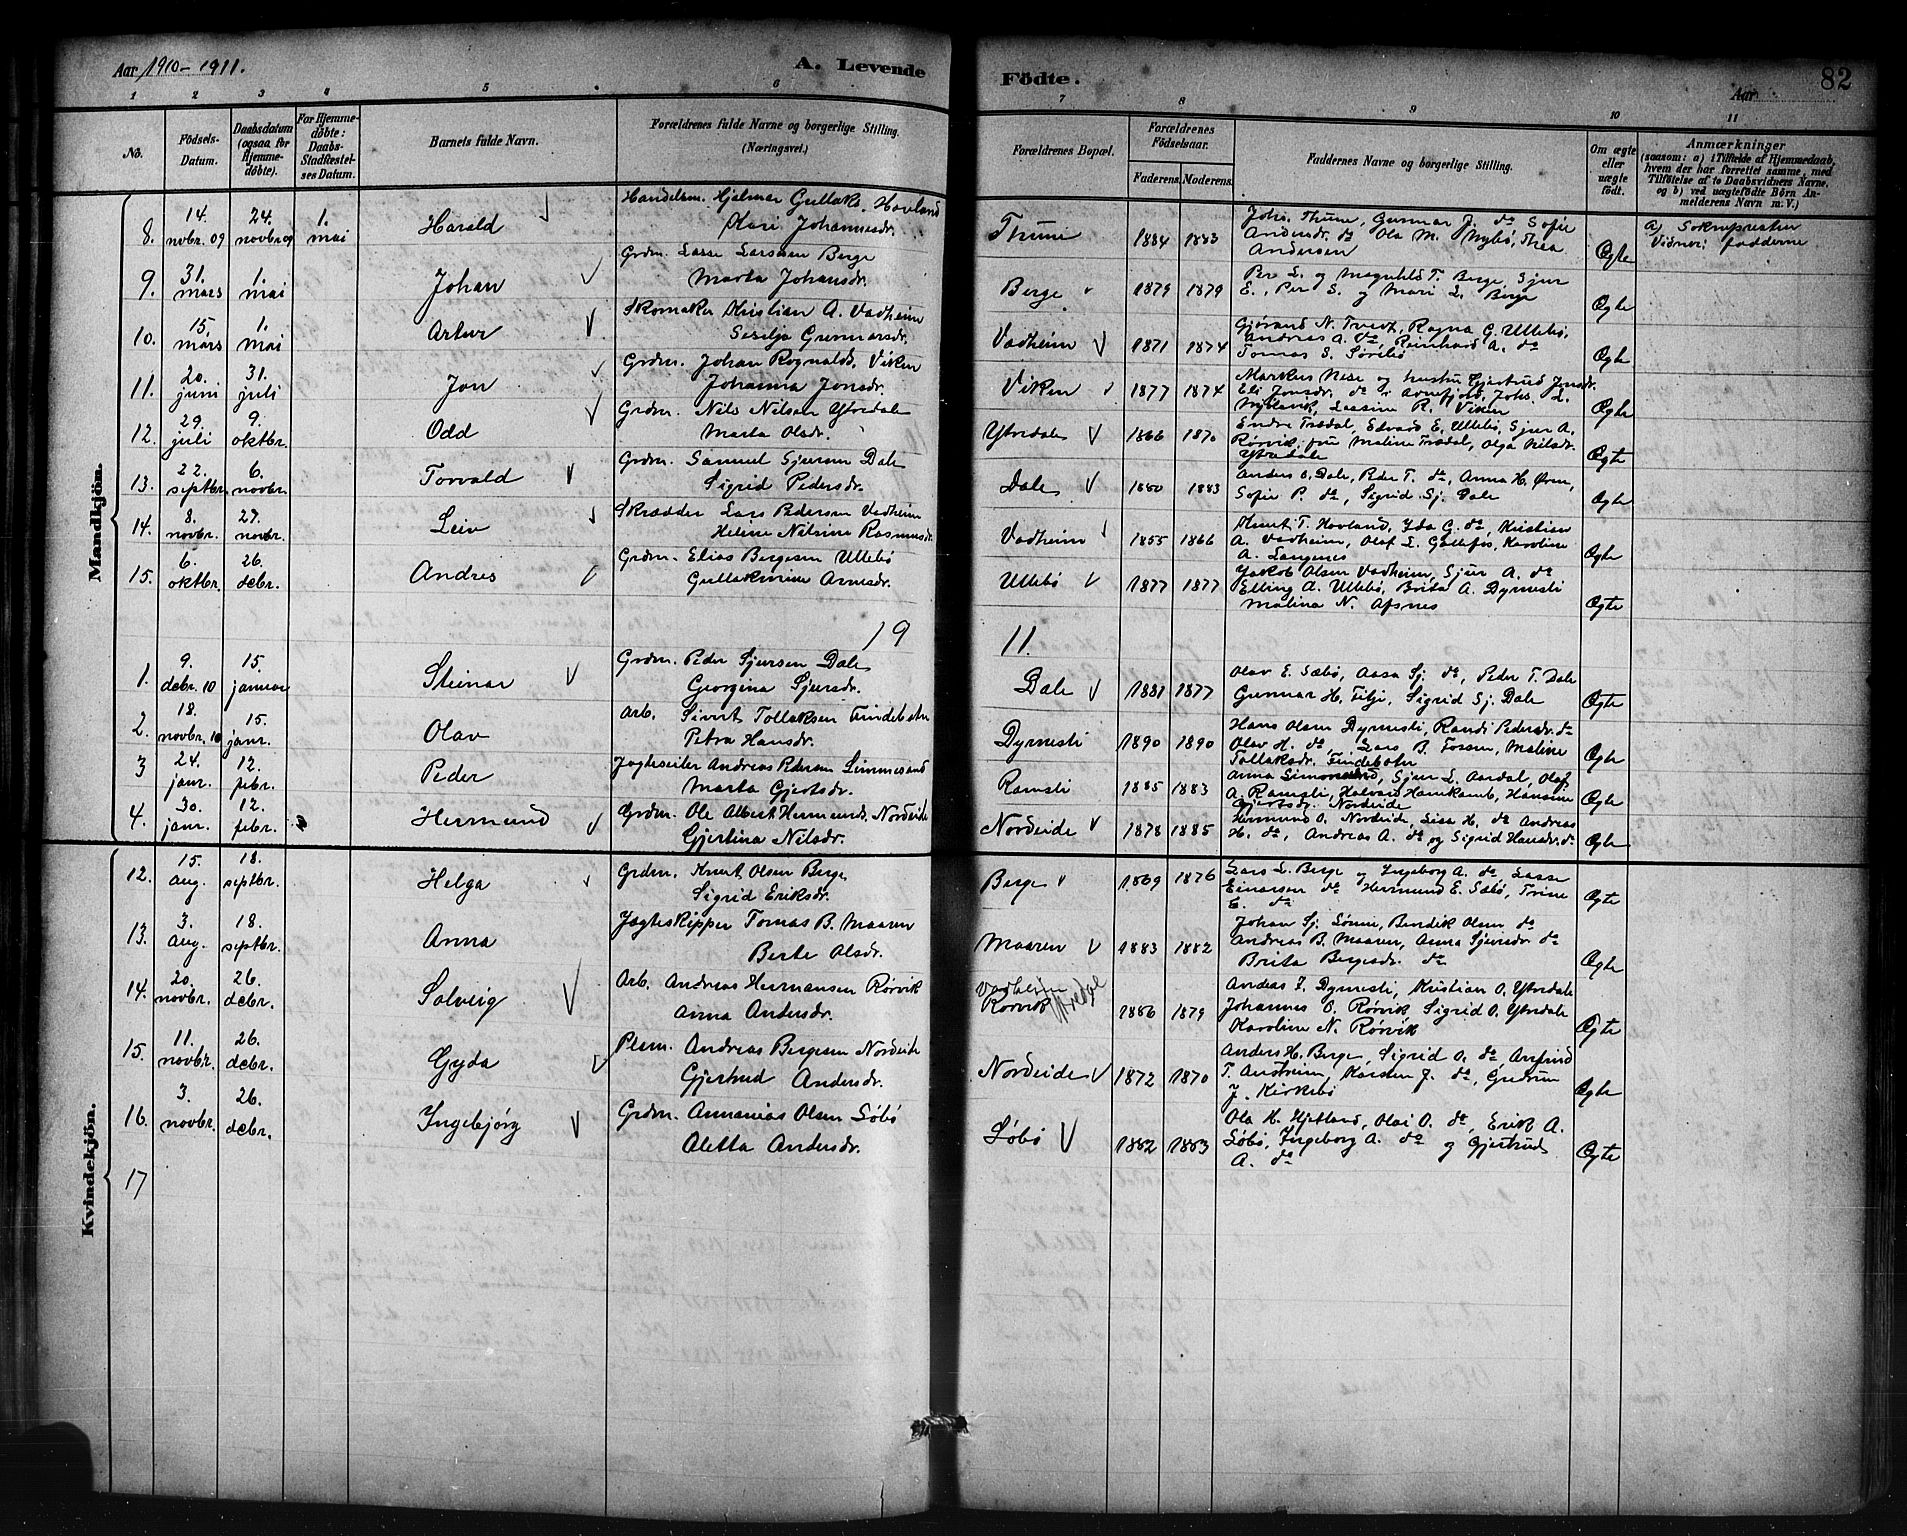 Aar 1910-1911.
A. Levende
Födte.
Aar
82
1 2 3 4 5 6 7 8 9 10 11
No.
Födsels-Datum.
Daabsdatum (ogsaa for Hjemmedöbte).
For Hjemmedöbte: Daabs-Stadfæstelses Datum.
Barnets fulde Navn.
Forældrenes fulde Navne og borgerlige Stilling. (Næringsvei.)
Forældrenes Bopæl.
Forældrenes Födselsaar.
Faderens. Moderens.
Faddernes Navne og borgerlige Stilling.
Om ægte eller uægte födt.
Anmærkninger
(saasom: a) i Tilfælde af Hjemmedaab, hvem der har forrettet samme, med Tilföielse af to Daabsvidners Navne. og b) ved uægtefödte Börn Anmelderens Navn m. V.)
Mandkjön.
8. 14. novbr. 09 24. novbr 09 1. mai Harald Handelsm. Hjalmar Gullaks. Hovland
Kari Johannesdr. Thune 1884 1883 Johs. Thune, Gunnar J. do Sofie
Andersdr. do Ola M. Nybö, Thea
Andersen Ægte a) Soknepresten
Vidner: fadderne
9. 31. mars 1. mai Johan Grdm. Lasse Larssen Berge
Marta Johansdr. Berge 1879 1879 Per L. og Magnhild T. Berge, Sjur
E., Per S. og Mari L. Berge Ægte
10. 15. mars 1. mai Artur Skomaker Kristian A. Vadheim
Sesilja Gunnarsdr. Vadheim 1871 1874 Gjørand N. Tveit, Ragna G. Ullebö,
Andreas A. do, Reinhard A. do
Tomas S. Sørebö Ægte
11. 20. juni 31. juli Jon Grdm. Johan Rognalds. Viken
Johanna Jonsdr. Viken 1877 1874 Markus Nese og hustru Gjertrud Jonsdr.
Eli Jonsdr. do i Arnefjord, Johs. L.
Nybland, Lassine R. Viken Ægte
12. 29. juli 9. oktbr. Odd Grdm. Nils Nilsen Ytredale
Marta Olsdr. Ytredale 1866 1870 Endre Trædal, Edvard E. Ullebö, Sjur A.
Rørvik, fru Maline Trædal, Olga Nilsdr.
Ytredale Ægte
13. 22. septbr. 6. novbr. Torvald Grdm. Samuel Sjursen Dale
Sigrid Pedersdr. Dale 1880 1883 Anders O. Dale, Peder T. do, Anna H. Øren,
Sofie P. do, Sigrid Sj. Dale Ægte
14. 8. novbr. 27. novbr. Leiv Skrædder Lars Pedersen Vadheim
Heline Nilsine Rasmusdr. Vadheim 1855 1866 Knut T. Hovland, Yda G. do, Kristian
A. Vadheim, Olaf L. Gallefos, Karoline
A. Langenes Ægte
15. 6. oktbr. 26. debr. Andres Grdm. Elias Bergesen Ullebö
Gullaksine Arnesdr. Ullebö 1877 1877 Jakob Olsen Vadheim, Sjur A. do
Elling A. Ullebö, Brita A. Dyrnesli
Malina N. Afsnes Ægte
19 11.
1. 9. debr. 10 15. januar Steinar Grdm. Peder Sjursen Dale
Georgina Sjursdr. Dale 1881 1877 Olav E. Sæbö, Aasa Sj. do, Peder T. Dale
Gunnar H. Tilji, Sigrid Sj. Dale Ægte
2. 18. novbr. 10 15. janr. Olav Arb. Sivert Tollaksen Findebotn
Petra Hansdr. Dyrnesli 1890 1890 Hans Olsen Dyrnesli, Randi Pedersdr. do
Olav H. do, Lars B. Fossen, Maline
Tollaksdr. Findebotn Ægte
3 24. janr. 12. febr. Peder Jagteseiler Andreas Pedersen Simmesand
Marta Gjertsdr. Ramsli 1885 1883 Anna Simonesand, Sjur L. Aardal, Olaf
A. Ramsli, Halvard Hamekamb, Hansine
Gjertsdr. Nordeide Ægte
4. 30. janr. 12. febr. Hermund Grdm. Ole Albert Hermunds. Nordeide
Gjertina Nilsdr. Nordeide 1878 1885 Hermund O. Nordeide, Lisa H. do Andreas
H. do, Andreas A. do og Sigrid Hansdr. do Ægte
Kvindekjön.
12. 15. aug. 18. septbr. Helga Grdm. Knut Olsen Berge
Sigrid Eriksdr. Berge 1869 1876 Lars L. Berge og Ingeborg A. do, Lasse
Einarsen do Hermund E. Sæbö, Trine
E. do Ægte
13. 3. aug. 18. septbr. Anna Jagteskipper Tomas B. Maaren
Berte Olsdr. Maaren 1883 1882 Johan Sj. Sönne, Bendik Olsen do
Andreas B. Maaren, Anna Sjursdr. do
Brita Bergesdr. do Ægte
14. 20. novbr. 26. debr. Solveig Arb. Andreas Hermansen Rørvik
Anna Andersdr. Vadheim
Rørvik Ytredal 1886 1879 Andeas J. Dyrnesli, Kristian O. Ytredale
Johannes O. Rørvik, Sigrid O. Ytredale
Karoline N. Rørvik Ægte
15. 11. novbr. 26. debr. Gyda Plsm. Andreas Bergesen Nordeide
Gjertrud Andersdr. Nordeide 1872 1870 Anders H. Berge, Sigrid O. do, Arnfind
T. Austreim, Karsten J. do, Gudrun
J. Kirkebö Ægte
16. 3. novbr. 26. debr. Ingebjörg Grdm. Annanias Olsen Söbö
Aletta Andersdr. Söbö 1882 1883 Ola H. Hjetland, Olai O. do, Erik A.
Söbö, Ingeborg A. do og Gjertrud
A. do Ægte
17